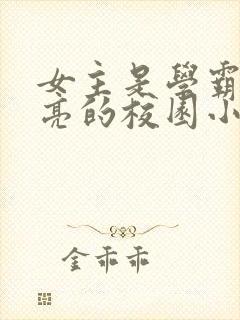 女主是學霸
亮的校園小
金乖乖